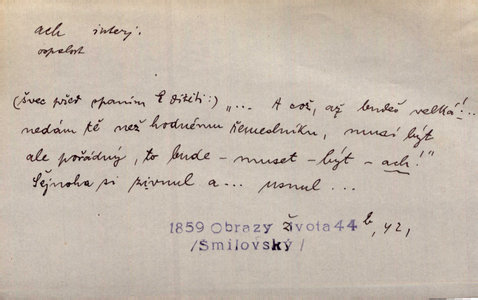 ach interj.
ospalost
(švec před spaním k dítěti:) „... A což, až budeš velká!..
nedám tě než hodnému řemeslníku, musí být
ale pořádný, to bude – muset – být – ach!"
Šejnoha si zívnul a ... usnul ...
1859 Obrazy života 44 b, 42,
/Smilovský/